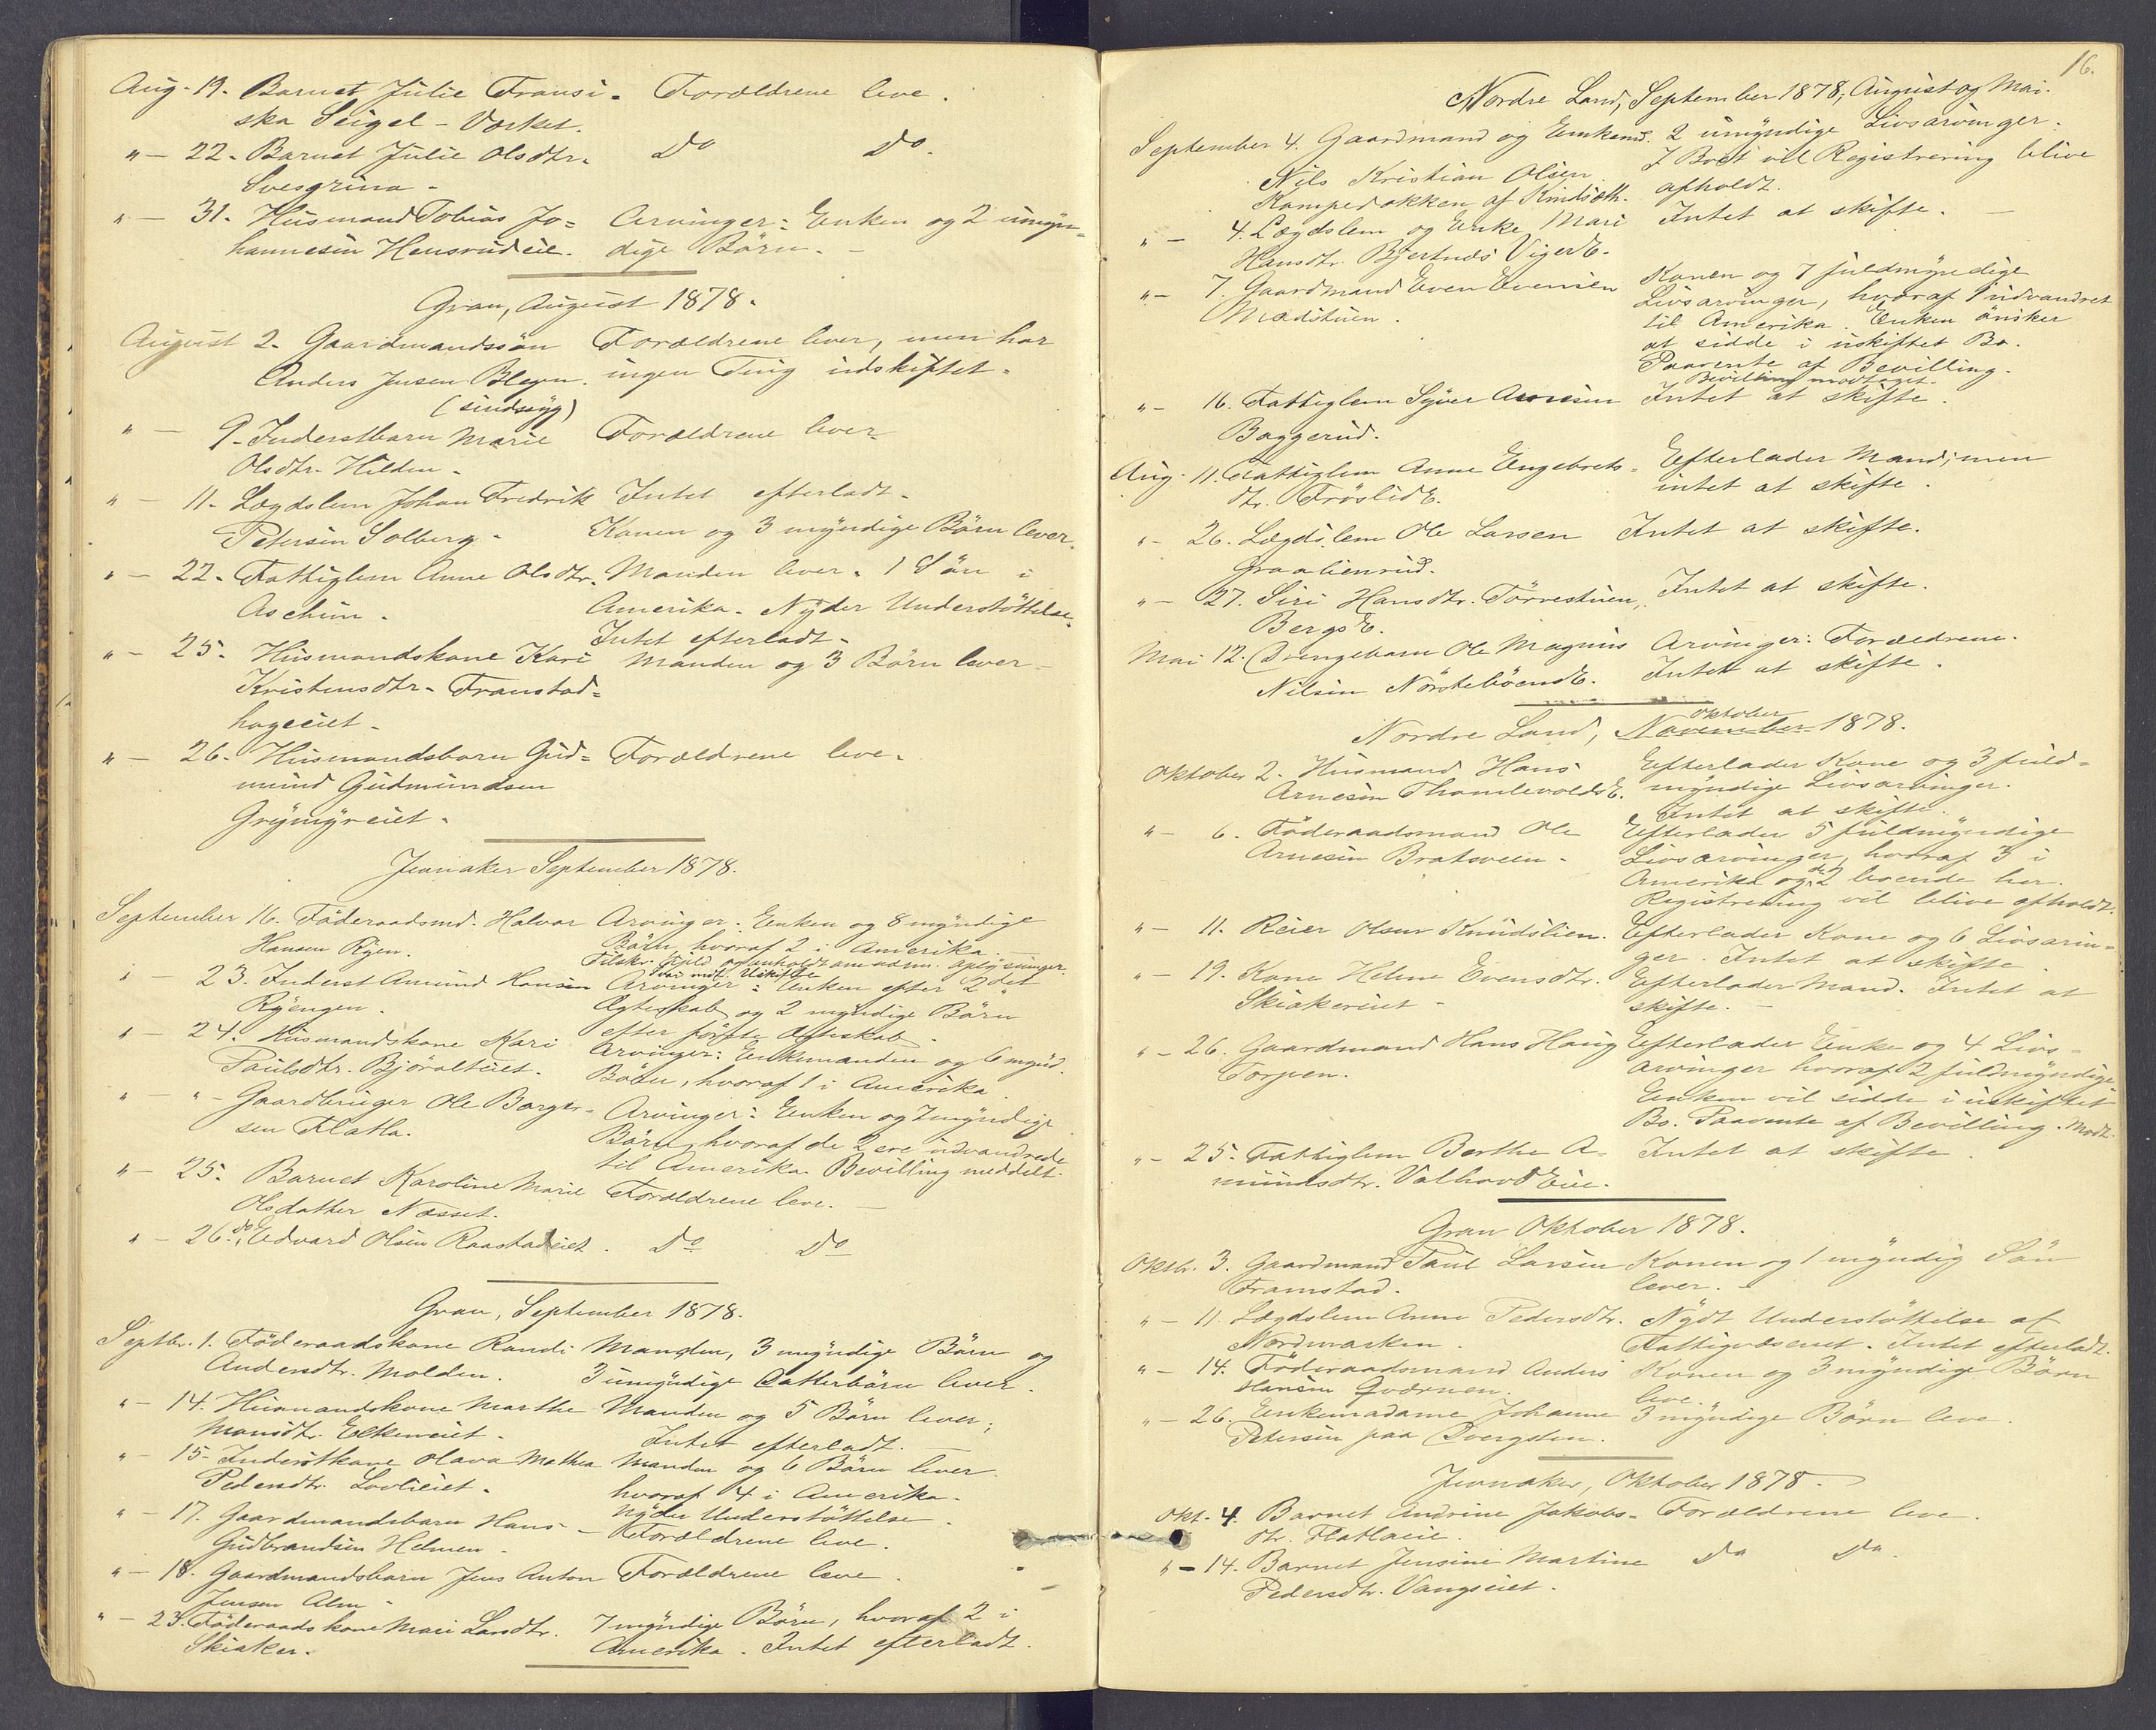 Aug. 19. Barnet Julie Fransi- Forældrene leve.
ska Seigel - Værket.
" — 22. Barnet Julie Olsdtr. Do Do.
Svesgrina.
" — 31. Husmand Tobias Jo= Arvinger: Enken og 2 umyn=
hannesen Hensrudeie. dige Børn. —
Gran, August 1878.
August 2. Gaardmandssøn Forældrene lever, men har
Anders Jensen Blegen. ingen Ting udskiftet.
(sindssyg)
" — 9. Inderstbarn Marie Forældrene lever.
Olsdtr. Hilden.
" — 11. Lægdslem Johan Fredrik Intet efterladt.
Petersen Solberg. Konen og 3 myndige Børn lever.
" — 22. Fattiglem Anne Olsdtr. Manden lever. 1 Søn i
Aschim. Amerika. Nyder Understøttelse.
Intet efterladt.
" — 25. Husmandskone Kari Manden og 3 Børn lever
Kristensdtr. Framstad=
hageeiet.
" — 26. Husmandsbarn Gud= Forældrene leve.
mund Gudmundsen
Grymyreiet.
Jevnaker September 1878.
September 16. Føderaadsmd. Halvor Arvinger: Enken og 8 myndige
Hansen Ryen. Børn, hvoraf 2 i Amerika.
Tilskr. Kjeld og anholdt om oplysninger.
" — 23. Inderst Amund Hansen Arvinger: Enken efter 2det
Ryengen. Ægteskab og 2 myndige Børn
efter første Ægteskab.
" — 24. Husmandskone Kari Arvinger: Enkemanden og 6 mynd.
Paulsdtr. Bjøralteiet. Børn, hvoraf 1 i Amerika.
" — " — Gaardbruger Ole Borger- Arvinger: Enken og 7 myndige
sen Flatla. Børn, hvoraf de 2 ere udvandrede
til Amerika. Bevilling meddelt.
" — 25. Barnet Karoline Marie Forældrene leve. —
Olsdatter Næsset.
" — 26. do. Edvard Olsen Raastadeiet. Do Do
Gran, September 1878.
Septbr. 1. Føderaadskone Randi Manden, 3 myndige Børn og
Andersdtr. Molden. 3 umyndige Datterbørn lever.
" — 14. Husmandskone Marthe Manden og 5 Børn lever;
Monsdtr. Elkeneiet. Intet efterladt. —
" — 15. Inderstkone Olava Mathea Manden og 6 Børn lever
Pedersdtr. Lovlieiet. hvoraf 4 i Amerika.
Nyder Understøttelse.
" — 17. Gaardmandsbarn Hans — Forældrene leve.
Gudbrandsen Helmen.
" — 18. Gaardmandsbarn Jens Anton Forældrene leve.
Jensen Alm.
" — 23. Føderaadskone Mari Larsdtr. 7 myndige Børn, hvoraf 2 i
Skiaker. Amerika. Intet efterladt.
16.
Nordre Land, September 1878, August og Mai.
September 4. Gaardmand og Enkemd. 2 umyndige Livsarvinger.
Nils Kristian Olsen I Boet vil Registrering blive
Kampedokken af Kindseth. afholdt.
" — 4. Lægdslem og Enke Mari Intet at skifte. —
Hansdtr. Bjertnæs Vigers E.
" — 7. Gaardmand Even Evensen Konen og 7 fuldmyndige
Mædstuen. Livsarvinger, hvoraf 1 udvandret
til Amerika. Enken ønsker
at sidde i uskiftet Bo.
Paavente af Bevilling.
Bevilling modtaget.
" — 16. Fattiglem Syver Arnesen Intet at skifte.
Baggerud.
Aug. 11. Fattiglem Anne Engebrets- Efterlader Mand; men
dtr. Frøslid E. intet at skifte.
" — 26. Lægdslem Ole Larsen Intet at skifte.
Graalienrud.
" — 27. Siri Hansdtr. Tørrestuen, Intet at skifte.
Bergs E.
Mai 12. Drengebarn Ole Magnus Arvinger: Forældrene.
Nilsen Nørstebøens E. Intet at skifte.
Oktober
Nordre Land, November 1878.
Oktober 2. Husmand Hans Efterlader Kone og 3 fuld=
Arnesen Thomlevolds E. myndige Livsarvinger.
Intet at skifte.
" — 6. Føderaadsmand Ole Efterlader 5 fuldmyndige
Arnesen Bratsveen. Livsarvinger, hvoraf 3 i
Amerika og de 2 boende her.
Registrering vil blive afholdt.
" — 11. Reier Olsen Knudslien. Efterlader Kone og 6 Livsarvin=
ger. Intet at skifte.
" — 19. Kone Helene Evensdtr. Efterlader Mand. Intet at
Skiakereiet. skifte. —
" — 26. Gaardmand Hans Haug Efterlader Enke og 4 Livs-
Torpen. arvinger hvoraf 2 fuldmyndige
Enken vil sidde i uskiftet
Bo. Paavente af Bevilling. Modt.
" — 25. Fattiglem Berthe A- Intet at skifte.
mundsdtr. Valhovd Eie.
Gran Oktober 1878.
Oktbr. 3. Gaardmand Paul Larsen Konen og 1 myndig Søn
Framstad. lever.
" — 11. Lægdslem Anne Pedersdtr. Nydt Understøttelse af
Nordmarken. Fattigvæsenet. Intet efterladt.
" — 14. Føderaadsmand Anders Konen og 3 myndige Børn
Hansen Qværnen. leve.
" — 26. Enkemadame Johanne 3 myndige Børn leve.
Petersen paa Dvergsten.
Jevnaker, Oktober 1878.
Okt. 4. Barnet Andrine Jakobs- Forældrene leve.
dtr. Flatlaeie.
" — 14. Barnet Jensine Martine Do Do.
Pedersdtr. Vangseiet.